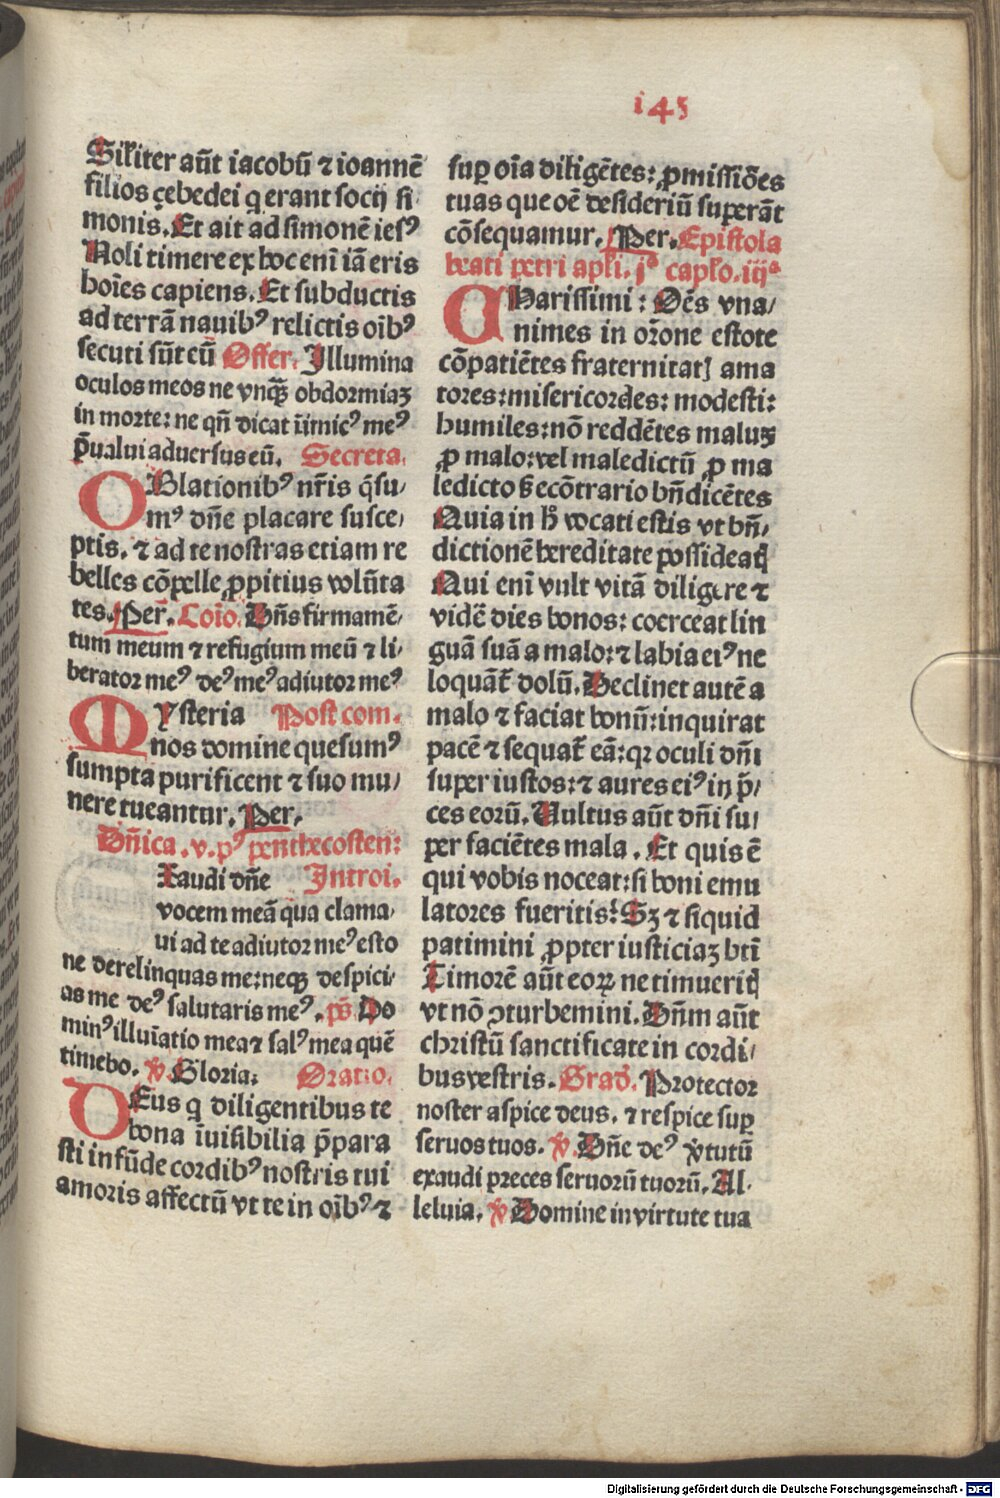 i45
Silʼiter aūt iacobū ⁊ ioannē
filios çebedei q erant socij si-
monis. Et ait ad simonē iesꝰ
Noli timere ex hoc enī iā eris
hoīes capiens. Et subductis
ad terrā nauibꝰ relictis oībꝰ
secuti sūt eū Offer. Illumina
oculos meos ne vnqꝫ obdormiaꝫ
in morte: ne qn̄ dicat iīmicꝰ meꝰ
p̄ualui aduersus eū. Secreta.
OBlationibꝰ nr̄is q̄su/
mꝰ dn̄e placare susce/
ptis. ⁊ ad te nostras etiam re
belles cōpelle ꝓpitius volūta
tes. Per. Coīo. Dn̄s firmamē/
tum meum ⁊ refugium meū ⁊ li/
berator meꝰ deꝰ meꝰ adiutor meꝰ
MYsteria Post com.
nos domine quesumꝰ
sumpta purificent ⁊ suo mu/
nere tueantur. Per.
Dn̄ica .v. pꝰ penthecosten:
Exaudi dn̄e Introi.
vocem meā qua clama/
ui ad te adiutor meꝰ esto
ne derelinquas me: neqꝫ despici/
as me deꝰ salutaris meꝰ. ps̄ Do
minꝰ illuīatio mea ⁊ salꝰ mea quē
timebo. ℣ Gloria. Oratio.
DEus q diligentibus te
bona īuisibilia p̄para
sti infūde cordibꝰ nostris tui
amoris affectū vt te in oībꝰ ⁊
suꝑ oīa diligētes: ꝓmissiōes
tuas que oē desideriū superāt
cōsequamur. Per. Epistola
beati petri apłi. jᵃ capło. iijᵃ
CHarissimi: Oēs vna/
nimes in or̄one estote
cōpatiētes fraternitatꝭ ama
tores: misericordes: modesti:
humiles: nō reddētes maluꝫ
ꝓ malo: vel maledictū ꝓ ma
ledicto sꝫ ecōtrario bn̄dicētes
Quia in h̄ vocati estis vt bn̄/
dictionē hereditate possideatꝭ
Qui enī vult vitā diligere ⁊
vidē dies bonos: coerceat lin
guā suā a malo: ⁊ labia eiꝰ ne
loquāt̄ dolū. Declinet autē a
malo ⁊ faciat bonū: inquirat
pacē ⁊ sequat̄ eā: qꝛ oculi dn̄i
super iustos: ⁊ aures eiꝰ in p̄/
ces eorū. Vultus aūt dn̄i su/
per faciētes mala. Et quis ē
qui vobis noceat: si boni emu
latores fueritis? Sꝫ ⁊ siquid
patimini ꝓpter iusticiaꝫ btī
Timorē aūt eoꝝ ne timueritꝭ
vt nō ꝯturbemini. Dn̄m aūt
christū sanctificate in cordi/
bus vestris. Grad̄. Protector
noster aspice deus. ⁊ respice suꝑ
seruos tuos. ℣ Dn̄e deꝰ v̄tutū
exaudi preces seruorū tuorū. Al-
leluia. ℣ Domine in virtute tua
Digitalisierung gefördert durch die Deutsche Forschungsgemeinschaft - DFG